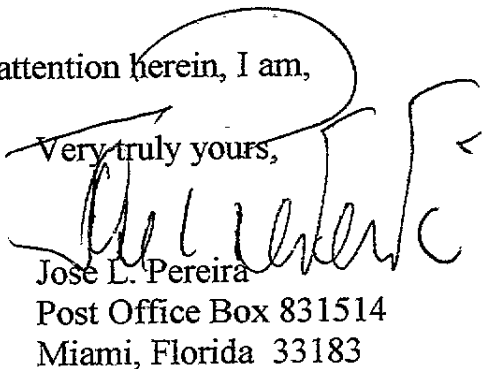 attention herein, I am,
Very truly yours,
Jose L. Pereira
Post Office Box 831514
Miami, Florida  33183